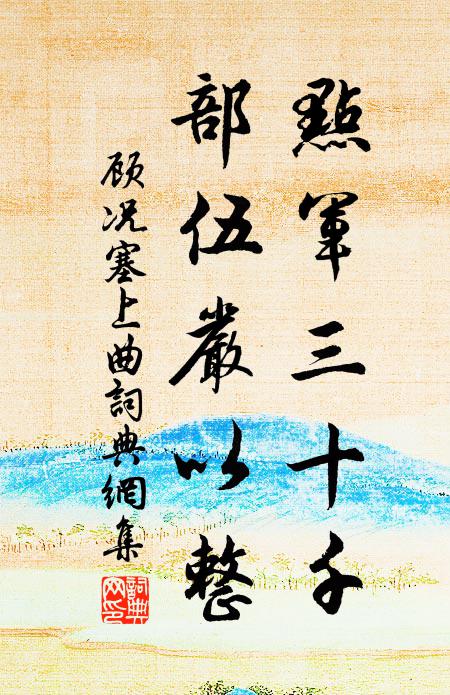 點軍三十千
部伍嚴以整
顾况塞上曲詞典網集
詞典网印